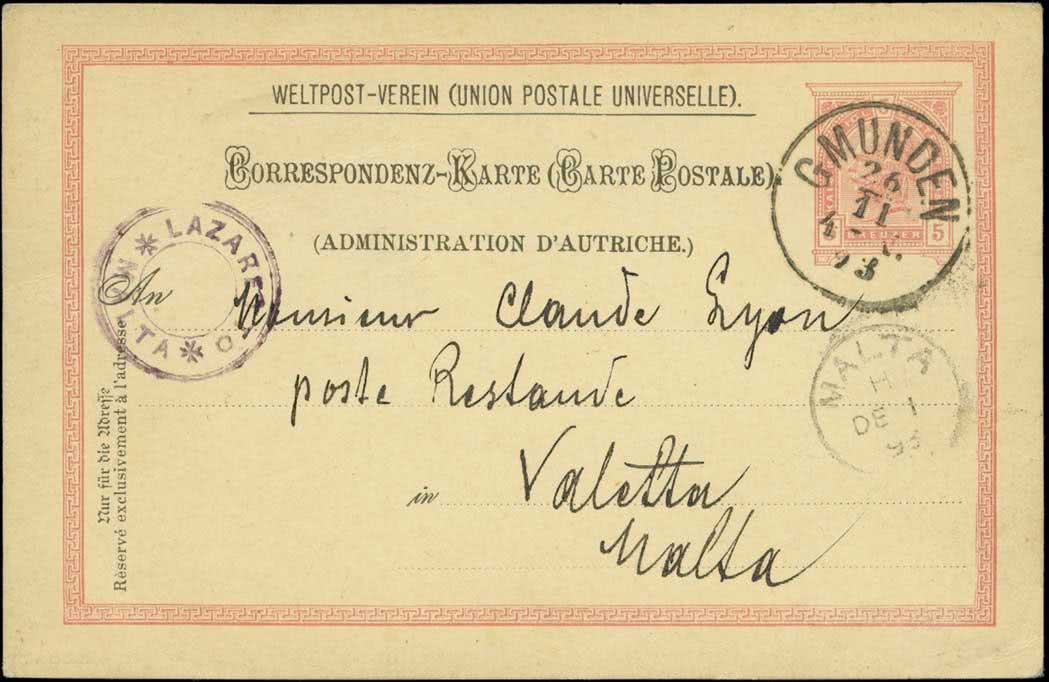 WELTPOST-VEREIN (UNION POSTALE UNIVERSELLE).
CORRESPONDENZ-KARTE (CARTE POSTALE)
(ADMINISTRATION D'AUTRICHE.)
KREUZER 5
GMUNDEN
26
11
93
LAZARETTO
MALTA
An Monsieur Claude Lyon
poste Restande
in Valetta
Malta
MALTA
H
DE 1
93
Nur für die Adresse
Rèservé exclusivement à l'adresse